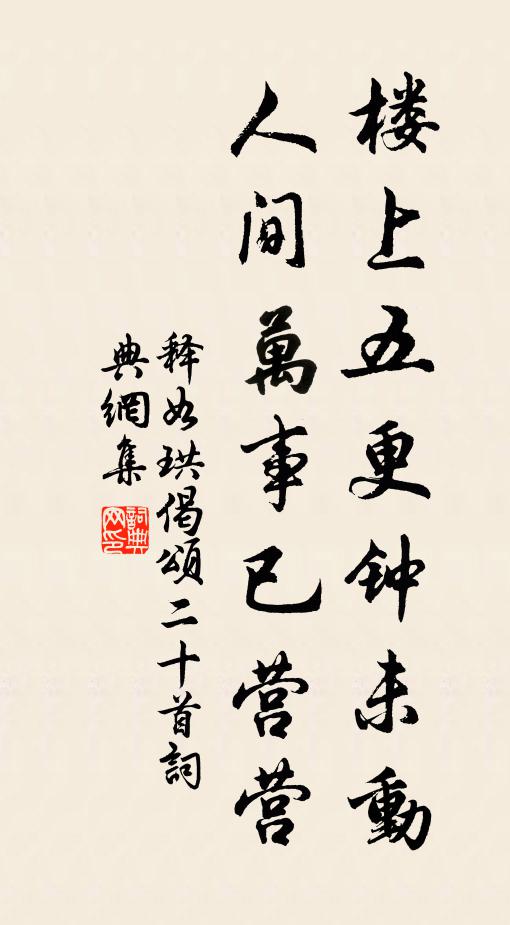 楼上五更钟未動
人间萬事已营营
释如珙偈頌二十首詞
典網集
詞典网印